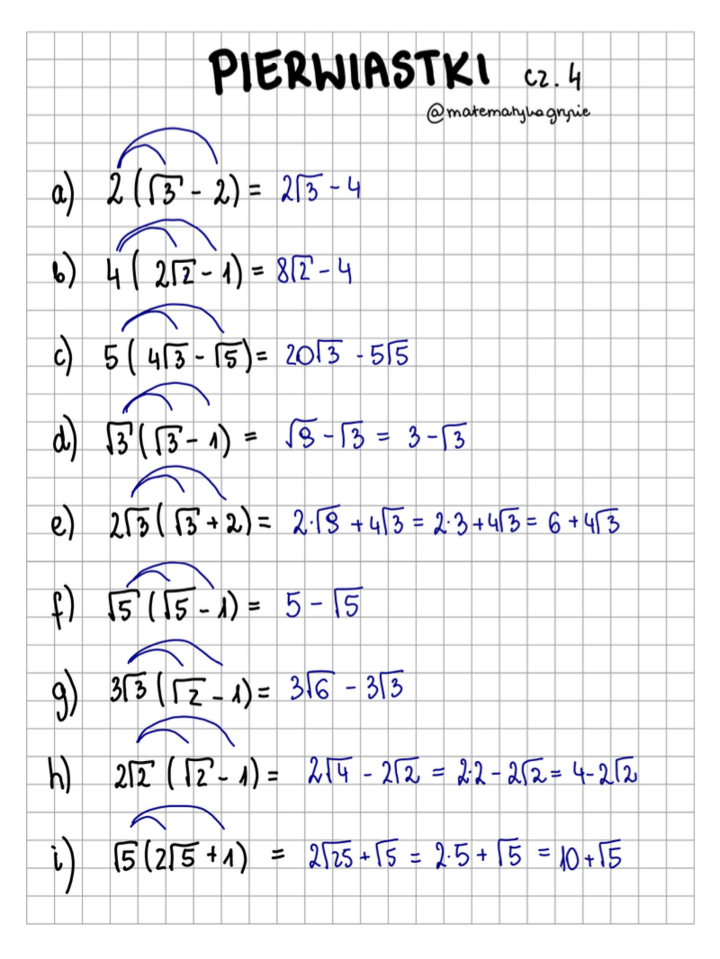 PIERWIASTKI cz. 4
@matematykagryzie
a) 2(√3 - 2) = 2√3 - 4
b) 4(2√2 - 1) = 8√2 - 4
c) 5(4√3 - √5) = 20√3 - 5√5
d) √3(√3 - 1) = √9 - √3 = 3 - √3
e) 2√3(√3 + 2) = 2·√9 + 4√3 = 2·3 + 4√3 = 6 + 4√3
f) √5(√5 - 1) = 5 - √5
g) 3√3(√2 - 1) = 3√6 - 3√3
h) 2√2(√2 - 1) = 2√4 - 2√2 = 2·2 - 2√2 = 4 - 2√2
i) √5(2√5 + 1) = 2√25 + √5 = 2·5 + √5 = 10 + √5